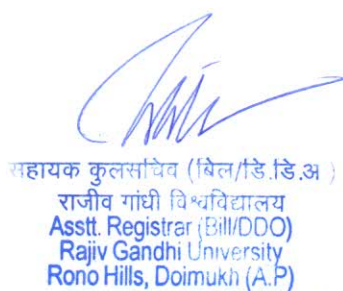 सहायक कुलसचिव (बिल/डि.डि.अ )
राजीव गांधी विश्वविद्यालय
Asstt. Registrar (Bill/DDO)
Rajiv Gandhi University
Rono Hills, Doimukh (A.P)